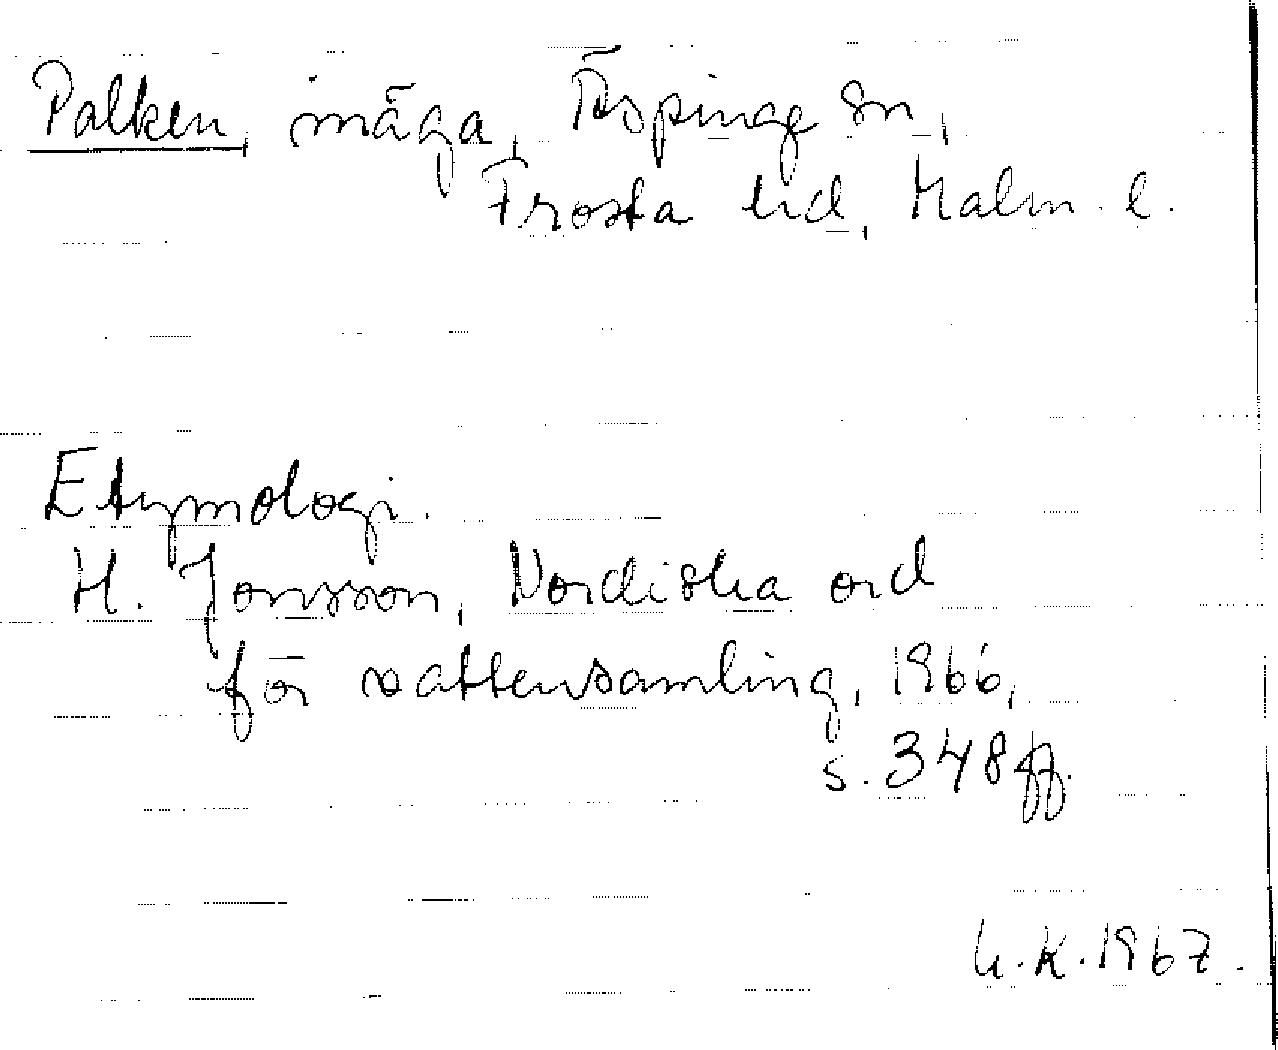 Palken, inäga, Äspinge sn,
Frosta hd, Malm. l.
Etymologi.
H. Jonsson, Nordiska ord
för vattensamling, 1966,
s. 348 ff.
K. 1967.